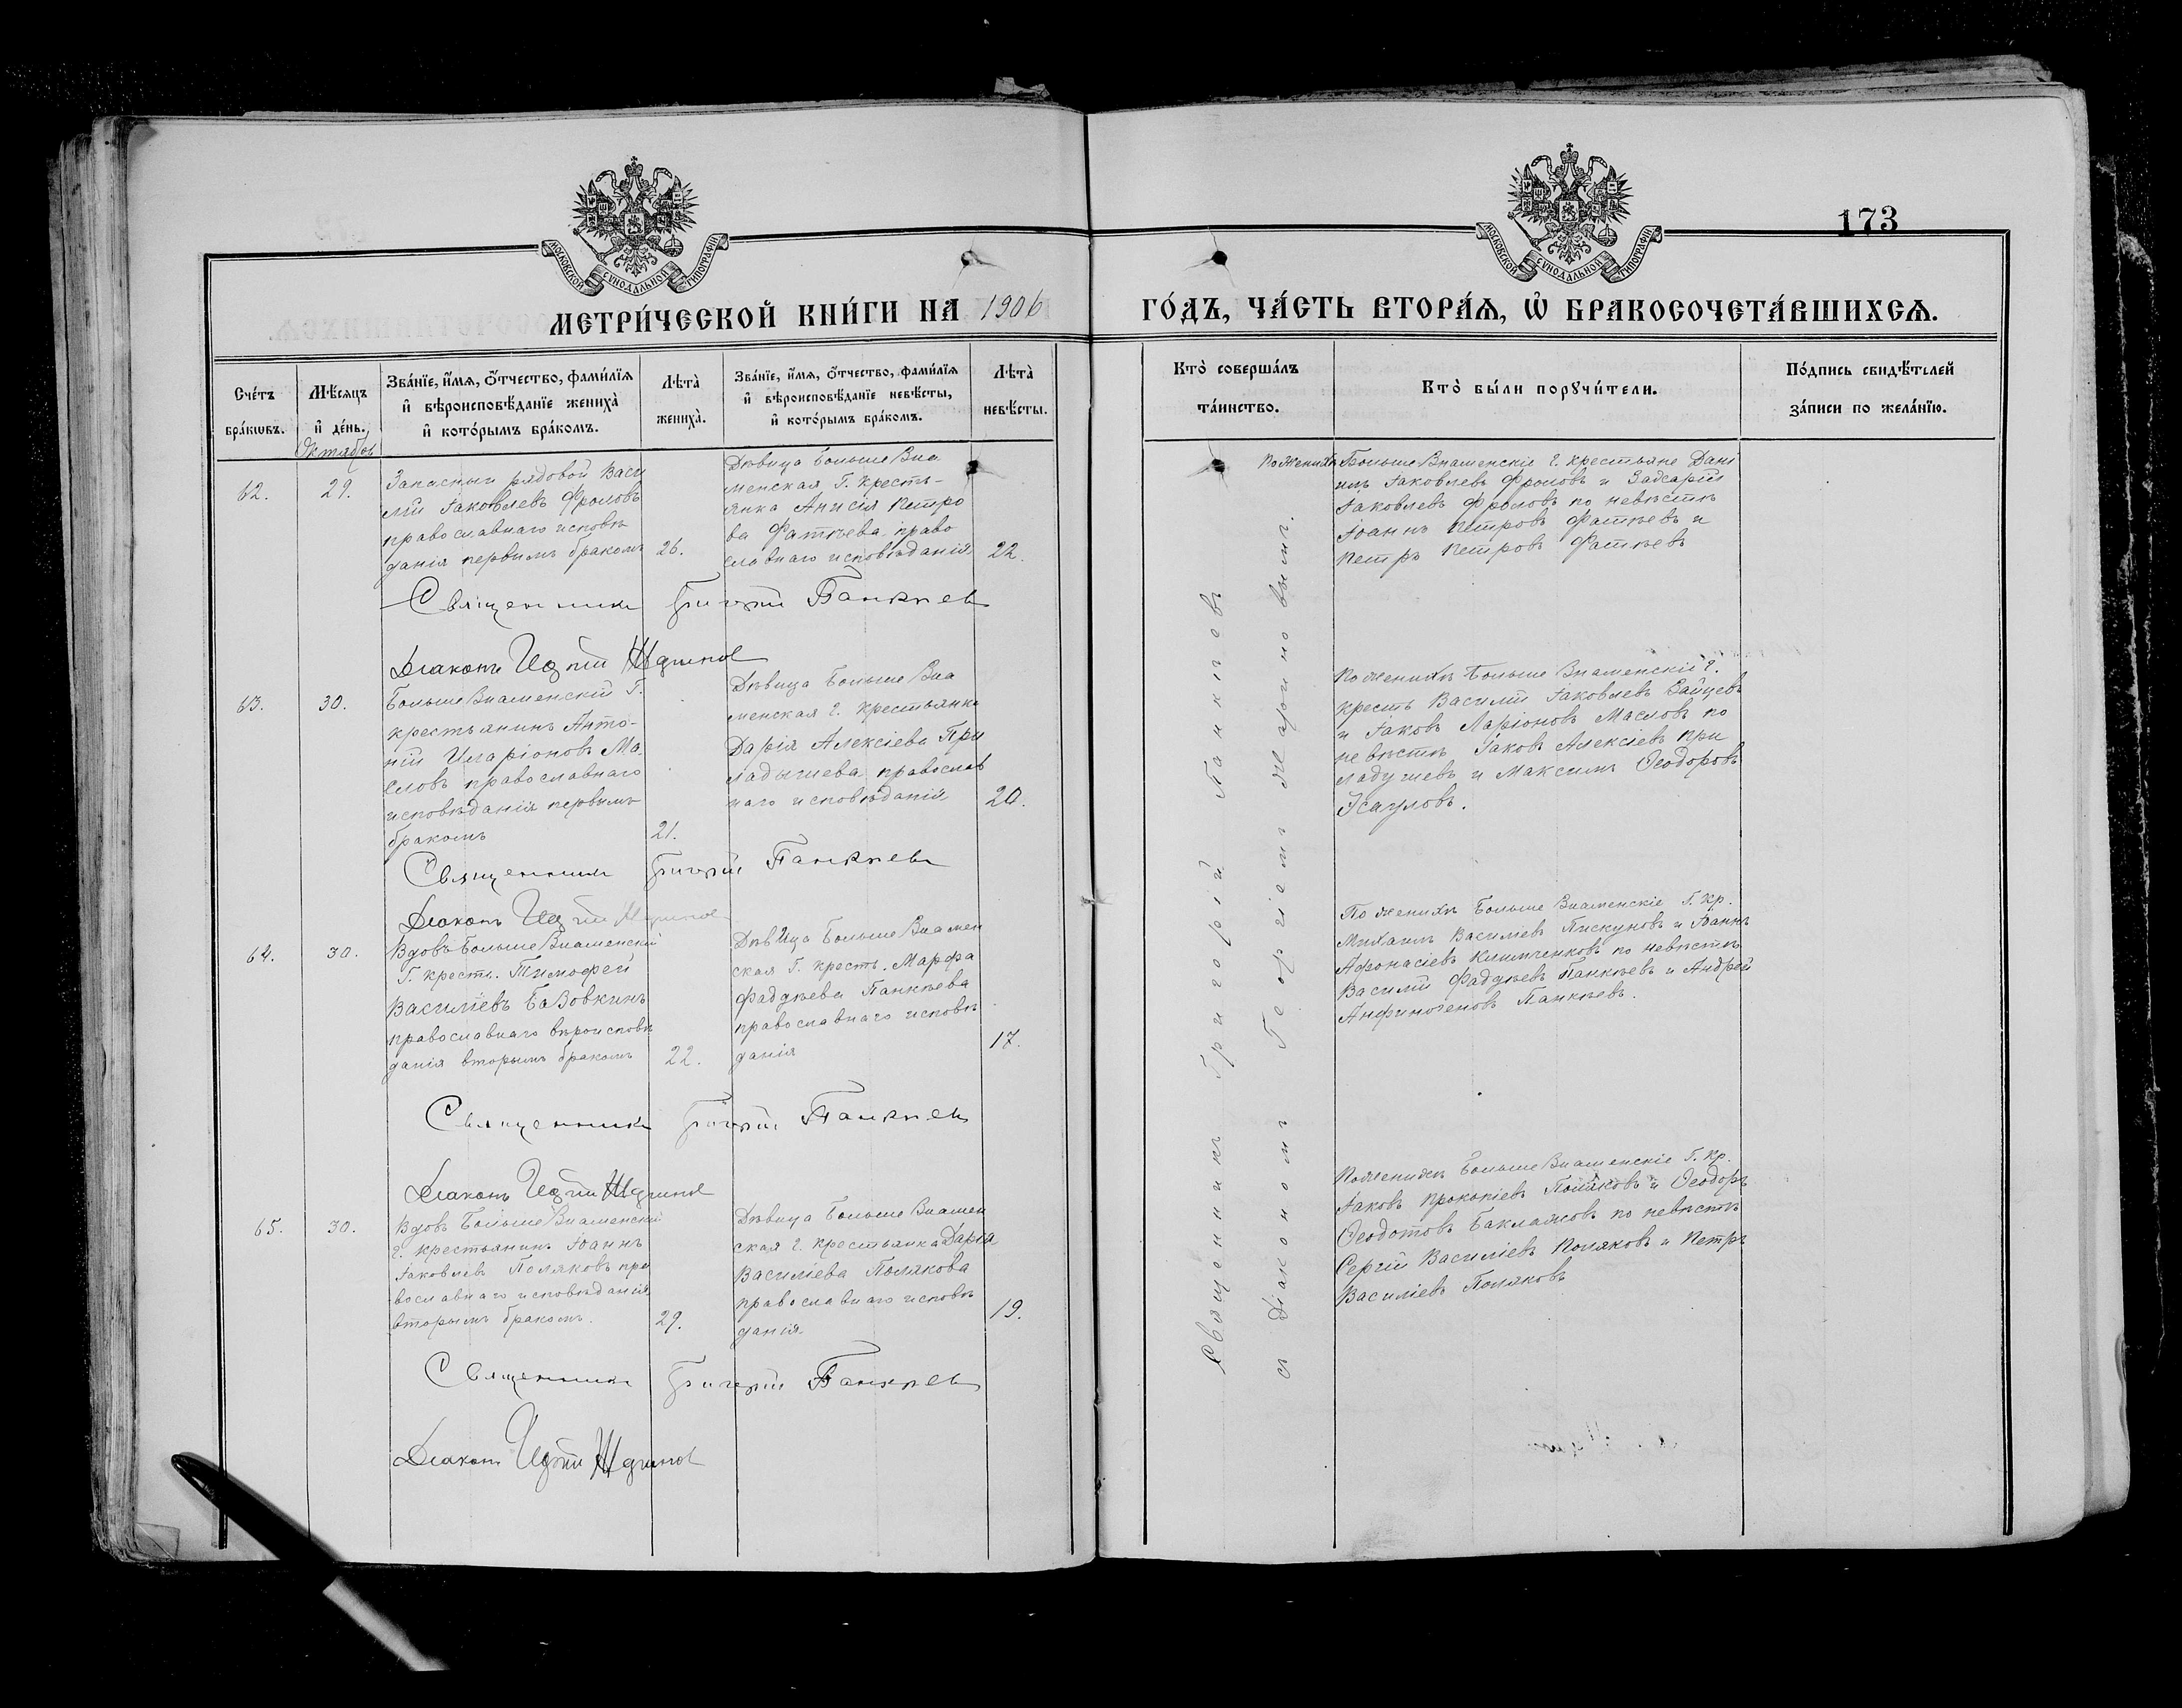 173
МОСКОВСКОЙ СѴНОДАЛЬНОЙ ТИПОГРАФІИ
МОСКОВСКОЙ СѴНОДАЛЬНОЙ ТИПОГРАФІИ
МЕТРИ́ЧЕСКОЙ КНИ́ГИ НА 1906 ГО́ДЪ, ЧА́СТЬ ВТОРА́Ѧ, Ѡ҆ БРАКОСОЧЕТА́ВШИХСѦ.
Сче́тъ
бра́кѡвъ.
Мѣ́сяцъ
и҆ де́нь.
Зва́нїе, и҆́мѧ, ѻ҆́тчество, фами́лїѧ
и҆ вѣроисповѣ́данїе жениха̀
и҆ кото́рымъ бра́комъ.
Лѣта̀
жениха̀.
Зва́нїе, и҆́мѧ, ѻ҆́тчество, фами́лїѧ
и҆ вѣроисповѣ́данїе невѣ́сты,
и҆ кото́рымъ бра́комъ.
Лѣта̀
невѣ́сты.
Кто̀ соверша́лъ
та́инство.
Кто̀ бы́ли порꙋчи́тели.
По́дпись свидѣ́телей
за́писи по жела́нїю.
Октябрь
62.
29.
Запасный рядовой Васи
лій Іаковлевъ Фроловъ
православнаго исповѣ
данія первымъ бракомъ
26.
Дѣвица Больше Зна
менская Г. кресть-
янка Анисія Петро
ва Фатѣева право
славнаго исповѣданія
22.
По женихѣ Больше Знаменскіе г. крестьяне Дані
илъ Іаковлевъ Фроловъ и
Іаковлевъ Фроловъ по невѣстѣ
Іоаннъ Петровъ Фатѣевъ и
Петръ Петровъ Фатѣевъ
Священникъ Григорій Панкѣевъ
Діаконъ
63.
30.
Больше Знаменскій Г.
крестьянинъ Анто-
ній Иларіоновъ Ма
словъ православнаго
исповѣданія первымъ
бракомъ
21.
Дѣвица Больше Зна
менская г. крестьянка
Дарія Алексіева При
ладышева православ
наго исповѣданія
20.
По женихѣ Больше Знаменскіе г.
кресть Василій Іаковлевъ Зайцевъ
и Іаковъ Ларіоновъ Масловъ по
невѣстѣ Іаковъ Алексіевъ При
ладышевъ и Максимъ Ѳеодоровъ
Эсауловъ.
Священникъ Григорій Панкѣевъ
Діаконъ
64.
30.
Вдовъ Больше Знаменскій
Г. кресть. Тимоѳей
Василіевъ Бабовкинъ
православнаго вѣроисповѣ
данія вторымъ бракомъ
22.
Дѣвица Больше Знамен
ская Г. кресть. Марфа
Фаддѣева Панкѣева
православнаго исповѣ
данія
17.
По женихѣ Больше Знаменскіе Г. кр.
Михаилъ Василіевъ Пискуновъ и Іоаннъ
Афонасіевъ Климченковъ по невѣстѣ
Василій Фаддѣевъ Панкѣевъ и Андрей
Анфиногеновъ Панкѣевъ.
Священникъ Григорій Панкѣевъ
Діаконъ
65.
30.
Вдовъ Больше Знаменскій
г. крестьянинъ Іоаннъ
Іаковлевъ Поляковъ пра
вославнаго исповѣданія
вторымъ бракомъ.
29.
Дѣвица Больше Знамен
ская г. крестьянка Дарія
Василіева Полякова
православнаго исповѣ
данія.
19.
По женихѣ Больше Знаменскіе Г. кр.
Іаковъ Прокопіевъ Поляковъ и Ѳеодоръ
Ѳеодотовъ Баклажовъ по невѣстѣ
Сергій Василіевъ Поляковъ и Петръ
Василіевъ Поляковъ
Священникъ Григорій Панкѣевъ
Діаконъ
Священникъ Григорій Панкѣевъ
съ Діакономъ Георгіемъ